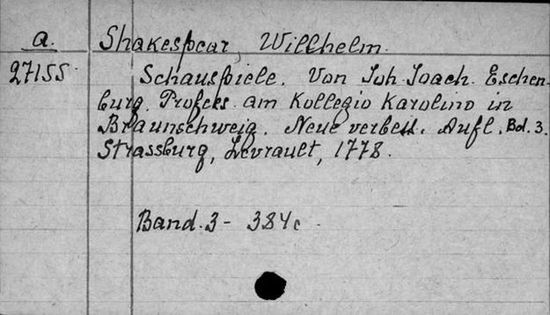 a. Shakespear, Willhelm.
27155 Schauspiele. Von Joh. Joach. Eschen-
burg. Profess. am Kollegio Karolino in
Braunschweig. Neue verbess. Aufl. Bd. 3.
Strassburg, Levrault, 1778.
Band. 3 - 384 c.